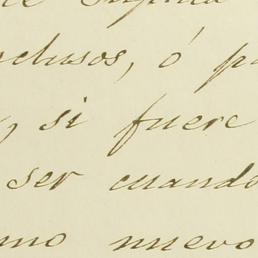 nclusos, ó p
si fuere
ser cuando
mo nuevo